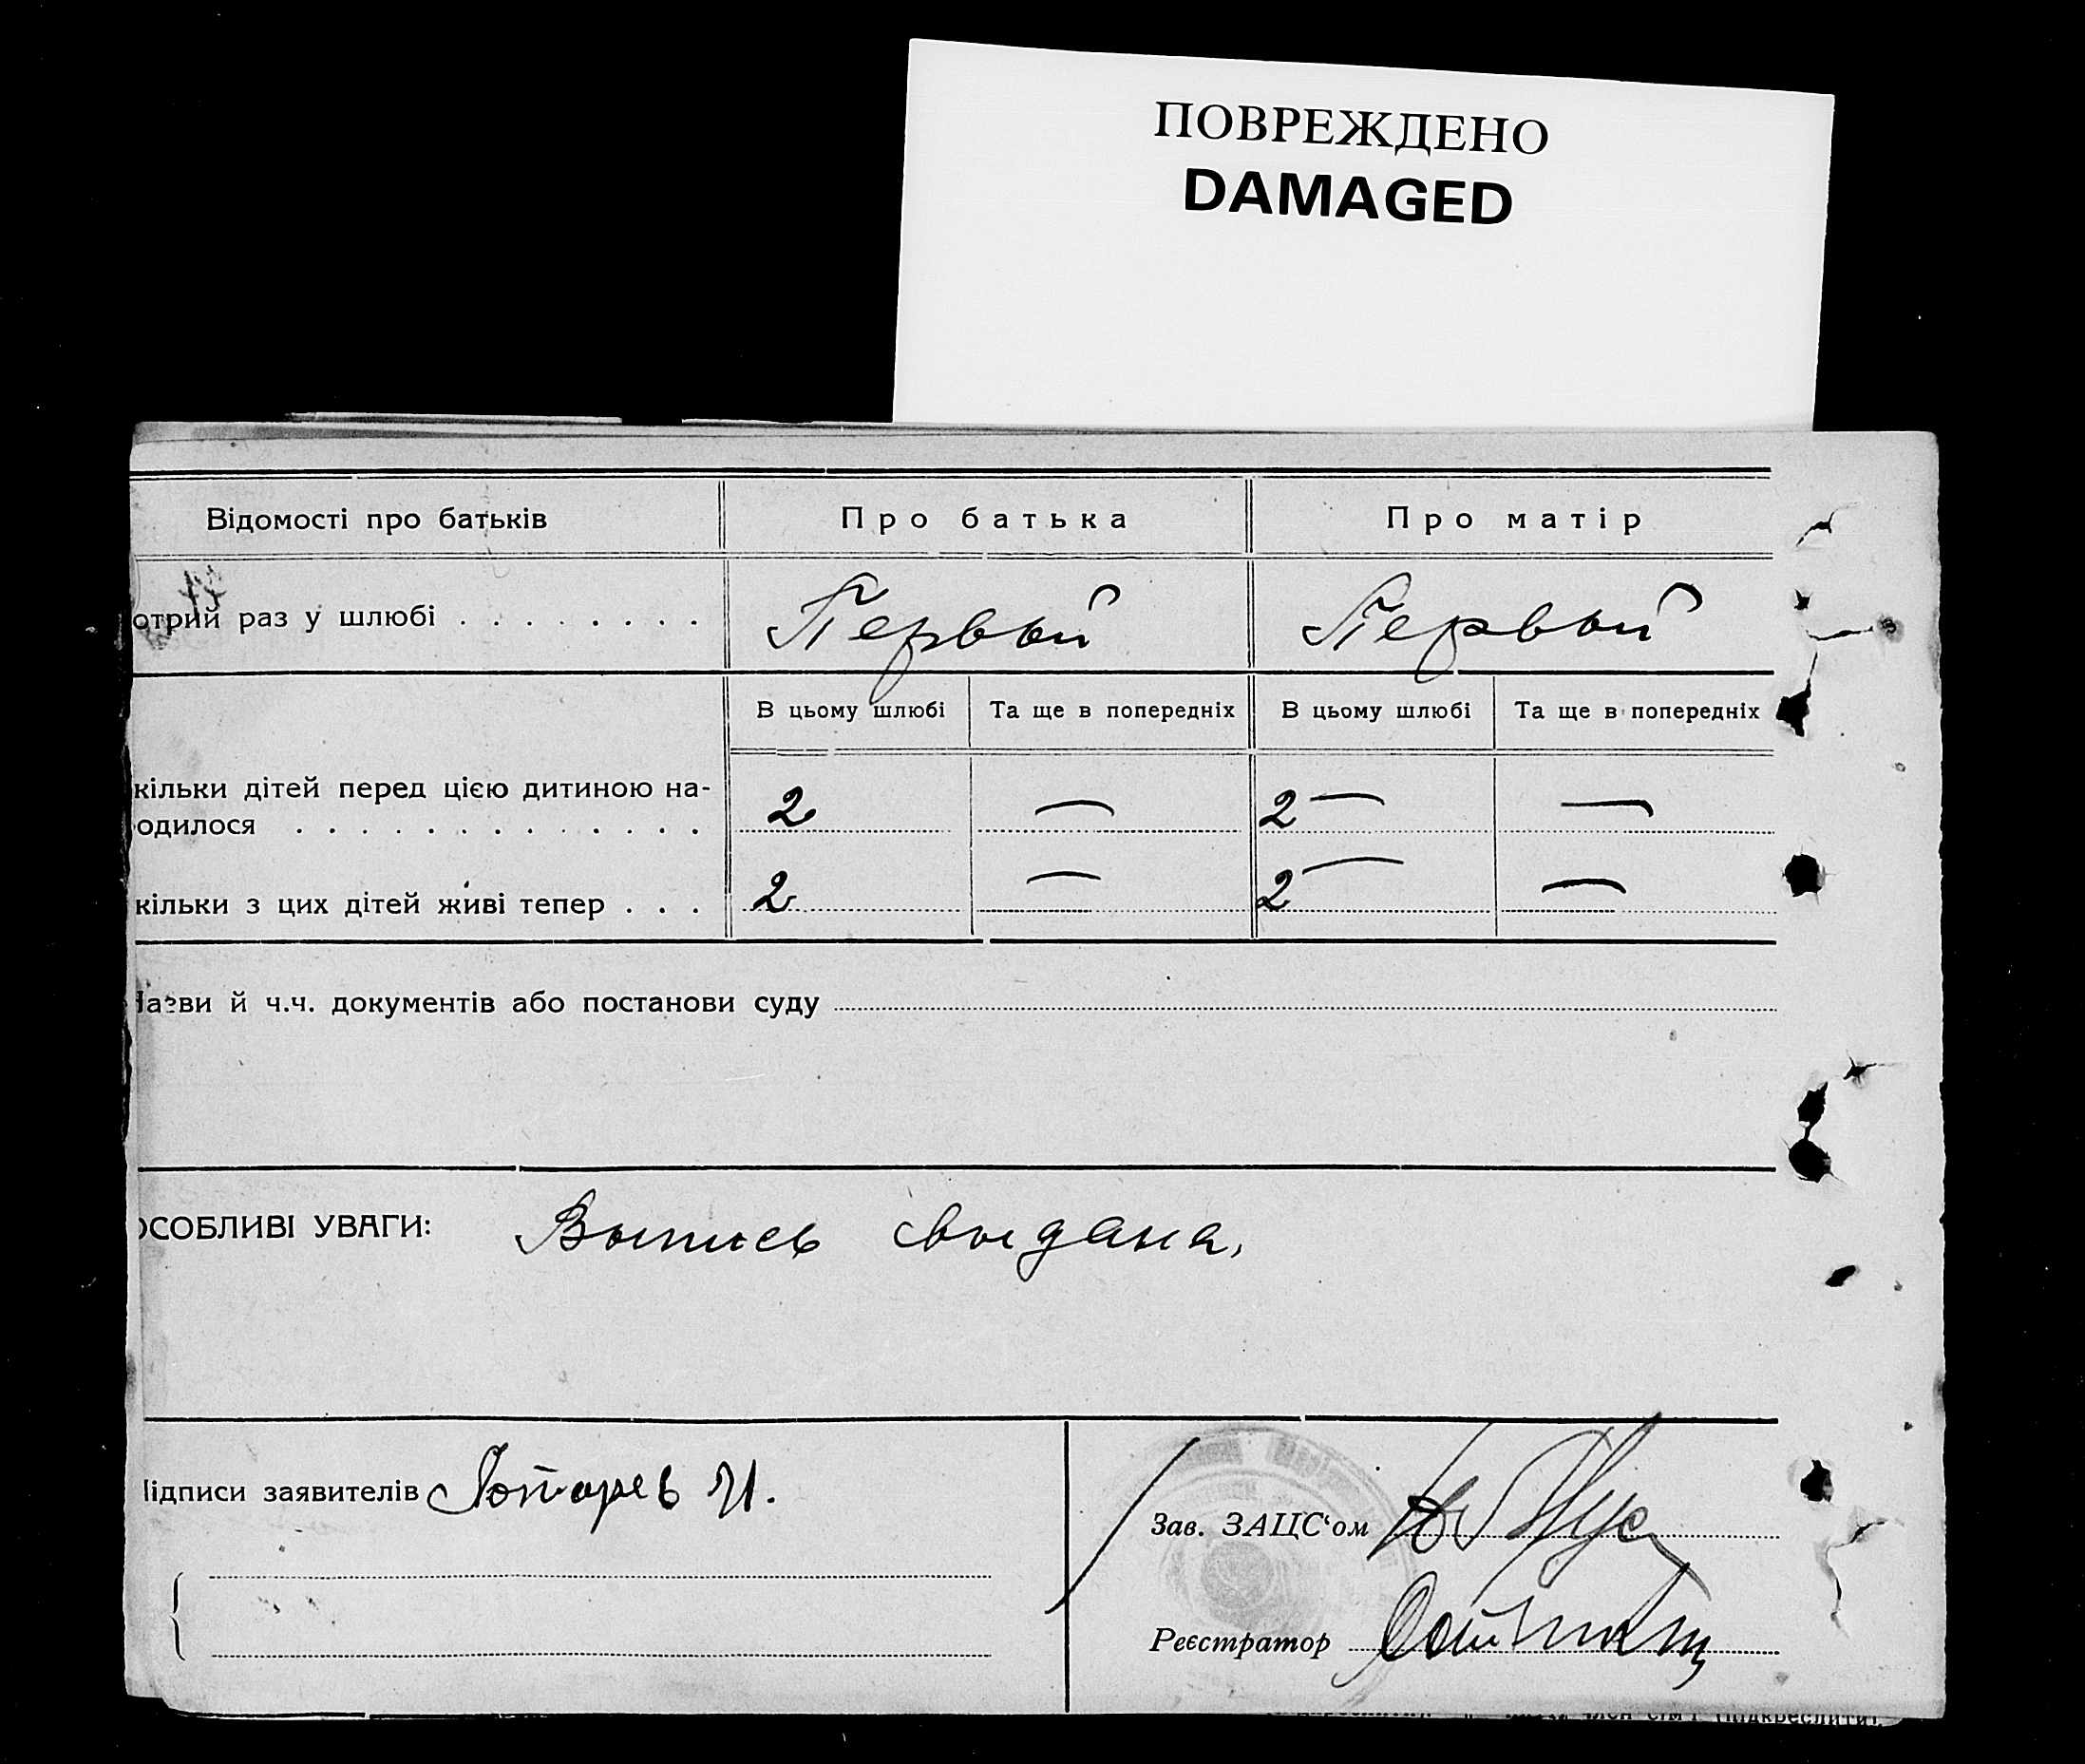 ПОВРЕЖДЕНО
DAMAGED
Відомості про батьків Про батька Про матір
отрий раз у шлюбі . . . . . . . . Первый Первый
В цьому шлюбі Та ще в попередніх В цьому шлюбі Та ще в попередніх
кільки дітей перед цією дитиною на-
одилося . . . . . . . . . . . . . 2 — 2 — —
кільки з цих дітей живі тепер . . . 2 — 2 — —
азви й ч.ч. документів або постанови суду
ОСОБЛИВІ УВАГИ: Выпись выдана,
ідписи заявителів
Зав. ЗАЦС‘ом
Реєстратор
член сім'ї (підкреслити)